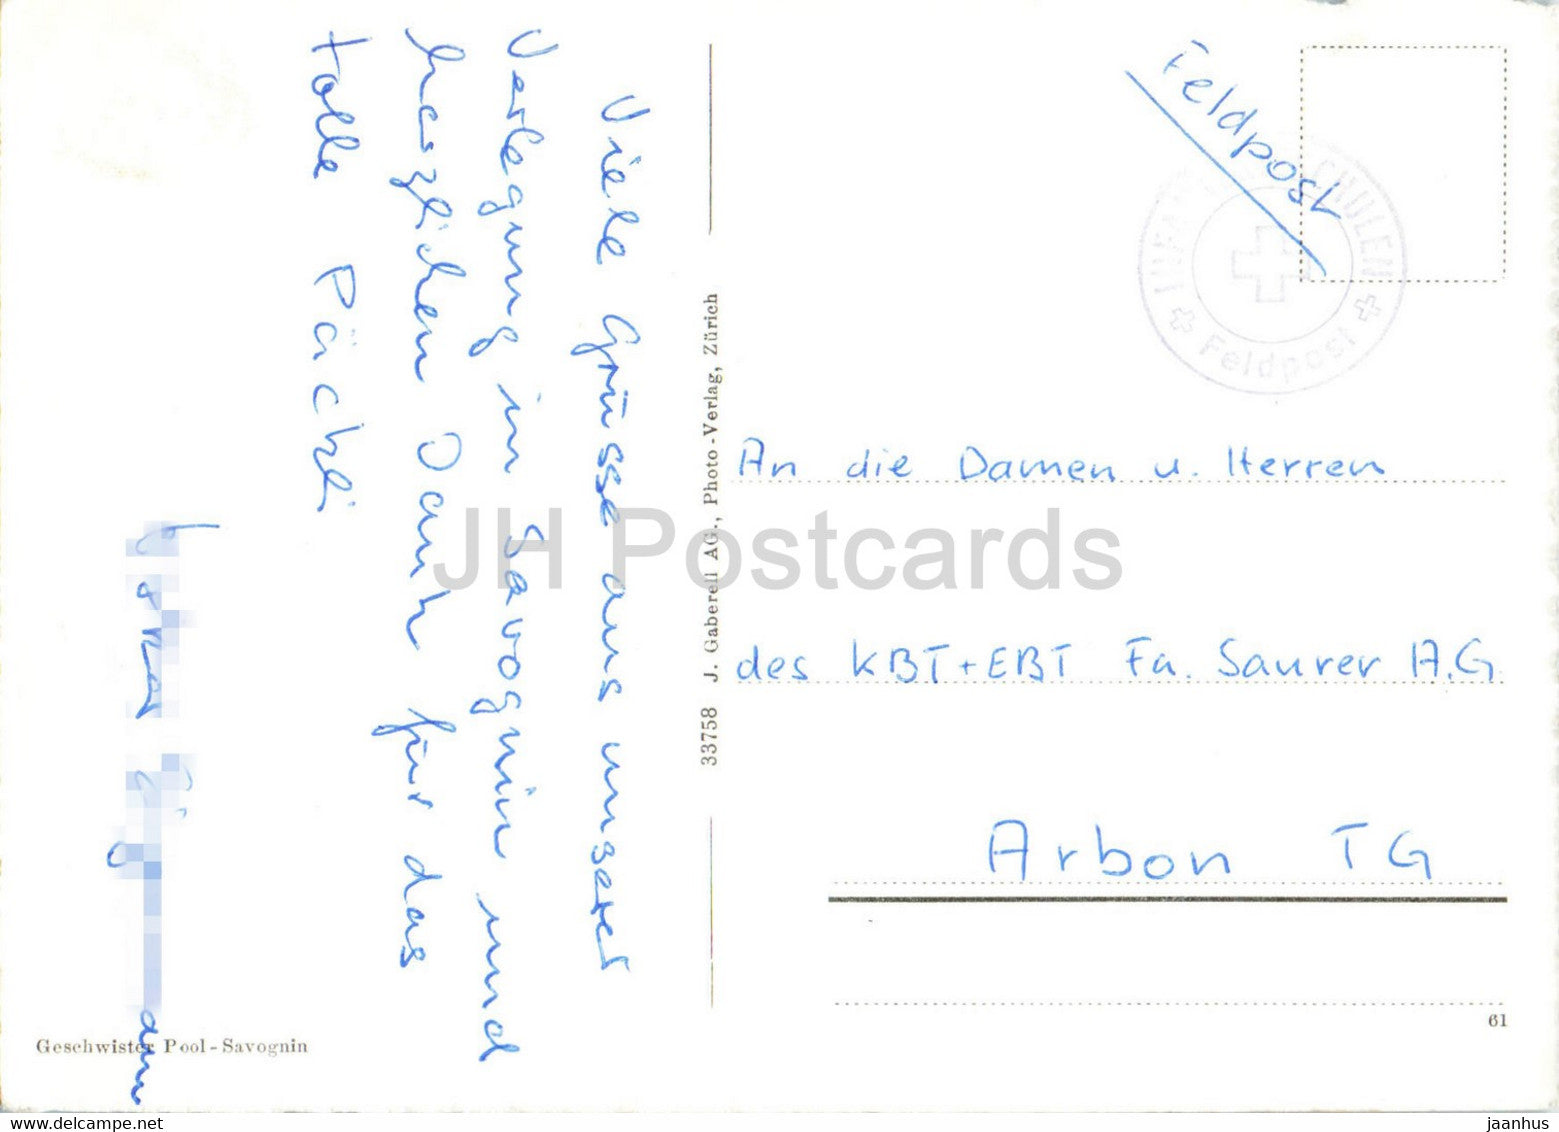 Viele Grüsse aus unserer
Verlegung in Savognin und
herzlichen Dank für das
tolle Päckli
Feldpost
SCHULEN
Feldpost
An die Damen u. Herren
des KBT+EBT Fa. Saurer A.G.
Arbon TG
33758 J. Gaberell AG., Photo-Verlag, Zürich
Geschwister Pool-Savognin
61
JH Postcards
www.delcampe.net
jaanhus